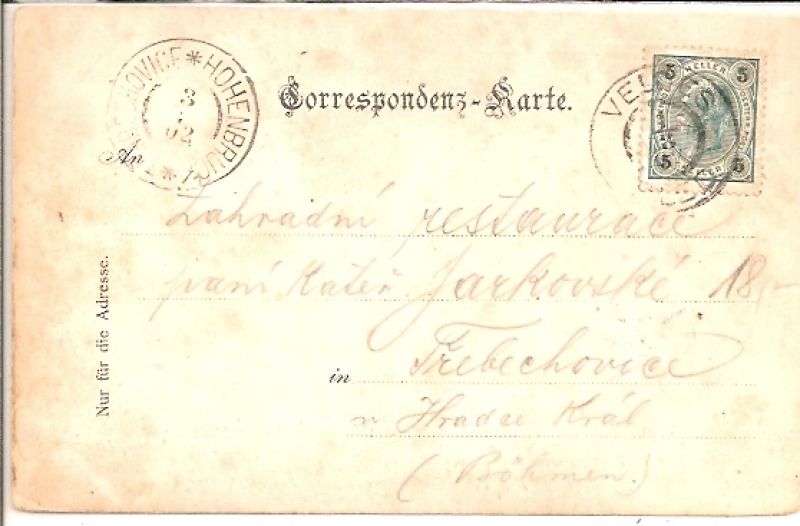 HOHENBRUCK
Correspondenz-Karte.
5 HELLER 5
5 5
An
Zahradní restaurace
paní Kateř Jarkovské
in Třebechovice
u Hradce Král
(Böhmen.)
Nur für die Adresse.